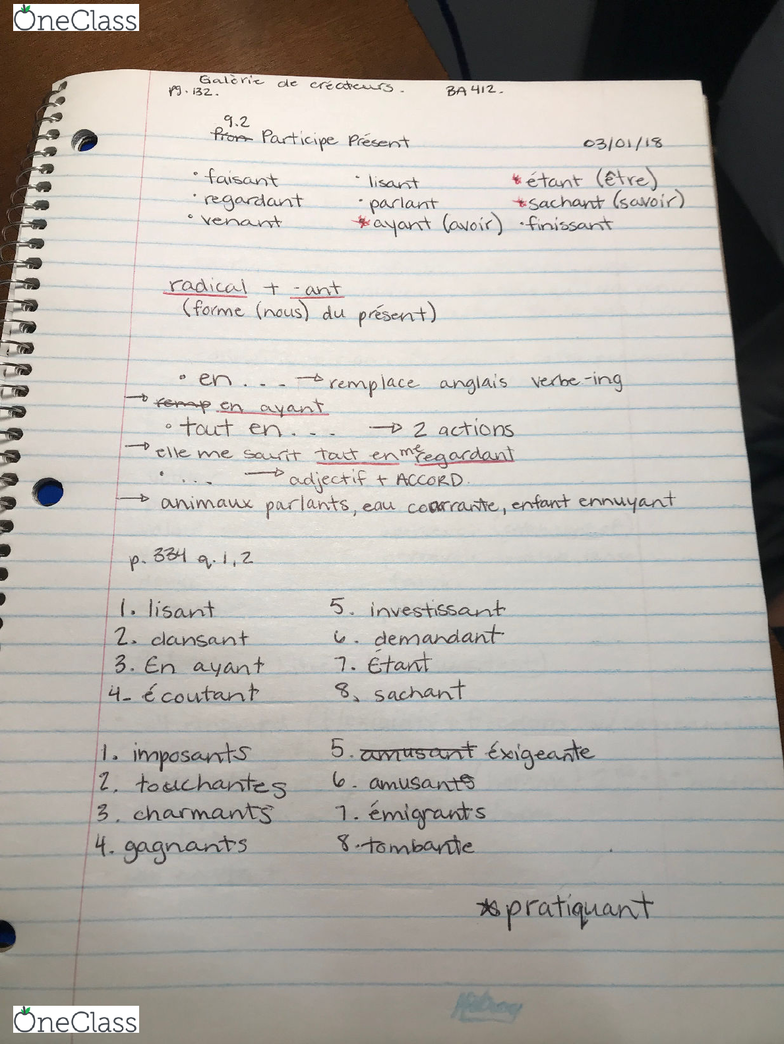 OneClass
Galèrie de créateurs. BA412.
pg. 132.
9.2
Participe Présent 03/01/18
• faisant • lisant * étant (être)
• regardant • parlant * sachant (savoir)
• venant * ayant (avoir) • finissant
radical + -ant
(forme (nous) du présent)
• en . . . → remplace anglais verbe -ing
→ en ayant
• tout en . . . → 2 actions
→ elle me sourit tout en me regardant
• ... → adjectif + ACCORD.
→ animaux parlants, eau courrante, enfant ennuyant
p. 334 q. 1, 2
1. lisant 5. investissant
2. dansant 6. demandant
3. En ayant 7. Étant
4- écoutant 8. sachant
1. imposants 5. amusant éxigeante
2. touchantes 6. amusants
3. charmants 7. émigrants
4. gagnants 8. tombante
* pratiquant
OneClass